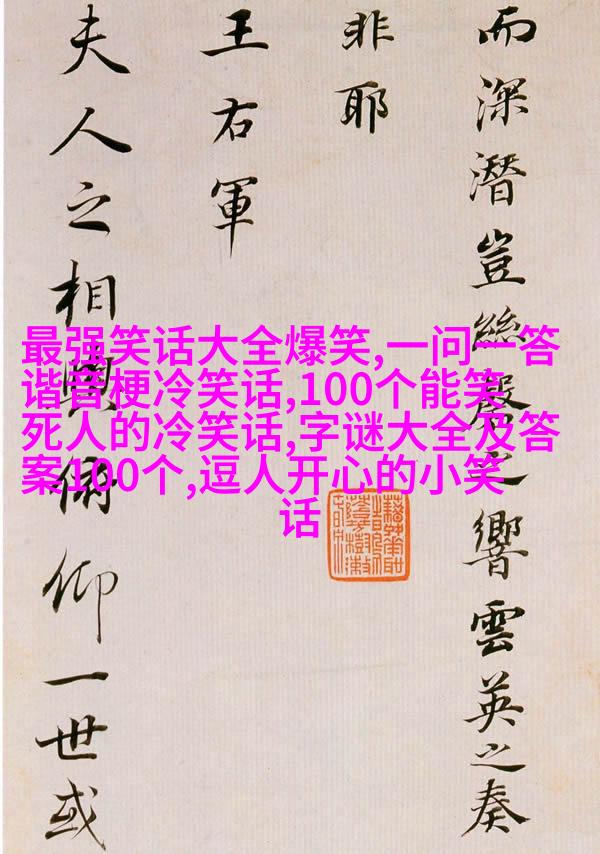 而深潜豈絲磬之響雲英之奏
非耶
王右軍
夫人之相與俯仰一世或
最强笑话大全爆笑,一问一答
谐音梗冷笑话,100个能笑
死人的冷笑话,字谜大全及答
案100个,逗人开心的小笑
话